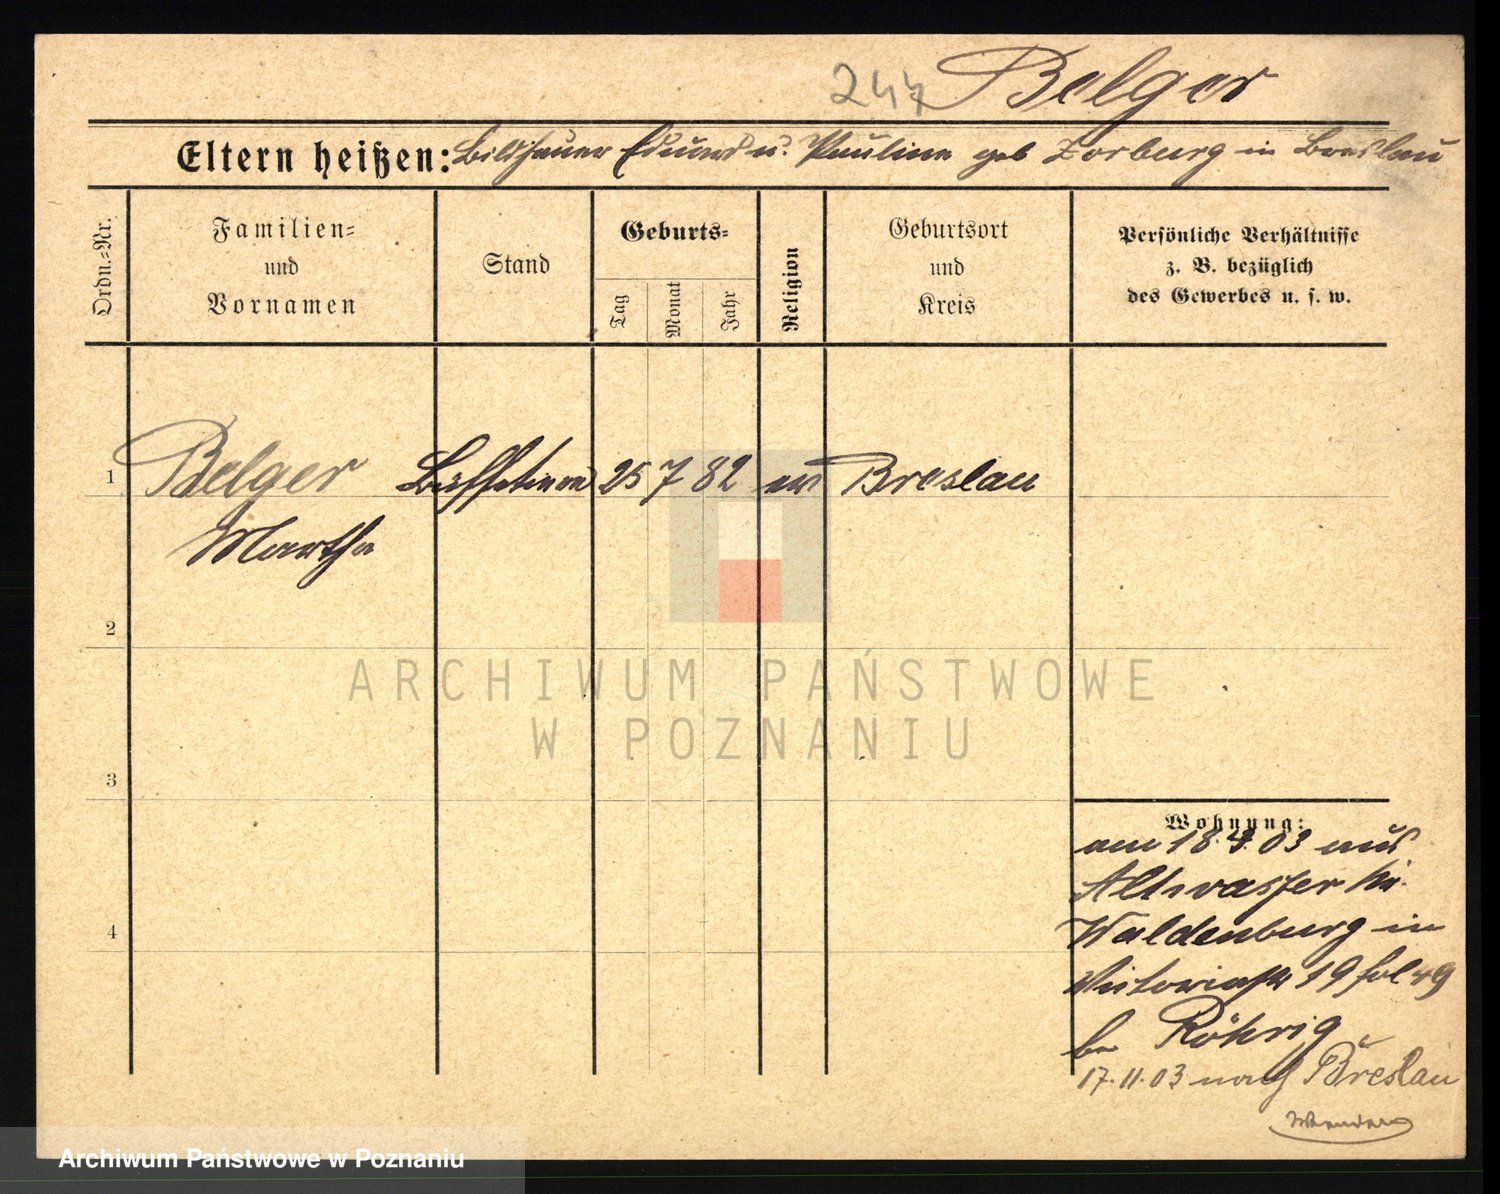 244 Belger
Eltern heißen: Bildhauer Eduard u. Pauline geb Zorburg in Breslau
Ordn.=Nr.
Familien=
und
Vornamen
Stand
Geburts=
Tag
Monat
Jahr
Religion
Geburtsort
und
Kreis
Persönliche Verhältnisse
z. B. bezüglich
des Gewerbes u. s. w.
1 Belger Büffetiere 25 7 82 ev Breslau
Martha
2
3
4
ARCHIWUM PAŃSTWOWE
W POZNANIU
Wohnung:
am 18.4.03 aus
Altwasser Kr.
Waldenburg in
Victoriastr 19 fol 49
bei Röhrig
17.11.03 nach Breslau
Archiwum Państwowe w Poznaniu